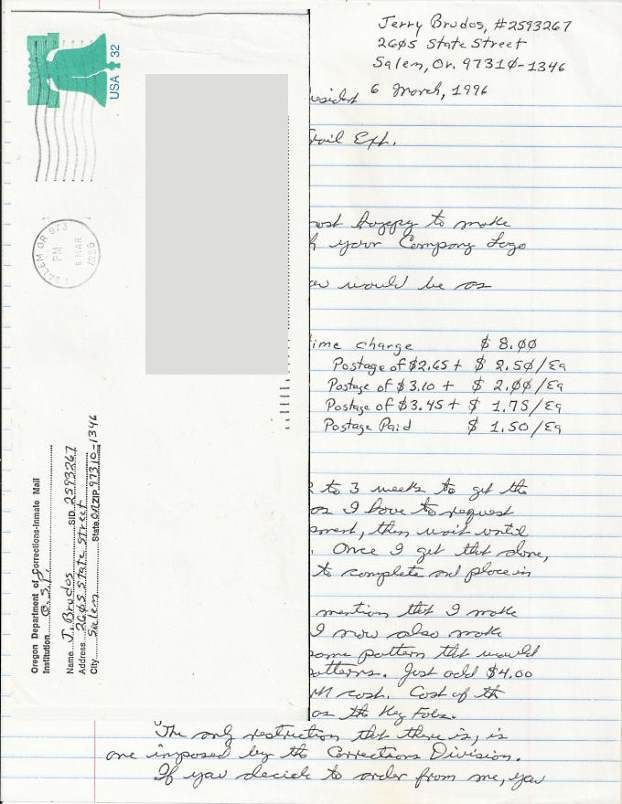 USA 32
SALEM OR 973
PM
6 MAR
1996
Oregon Department of Corrections-Inmate Mail
Institution O.S.P.
Name J. Brudos SID 2593267
Address 2605 State Street
City Salem State OR ZIP 97310-1346
Jerry Brudos, #2593267
2605 State Street
Salem, Or. 97310-1346
6 March, 1996
esident
ail Exp.
ost happy to make
your Company Logo
would be as
ime charge $8.00
Postage of $2.65 + $2.50/Ea
Postage of $3.10 + $2.00/Ea
Postage of $3.45 + $1.75/Ea
Postage Paid $1.50/Ea
to 3 weeks to get the
as I have to request
ment, then wait until
. Once I get that done,
to complete and place in
mention that I make
I now also make
some pattern that would
atterns. Just add $4.00
cost. Cost of th
as the Key Fobs.
"The only restriction that there is, is
one imposed by the Corrections Division.
If you decide to order from me, you